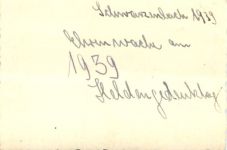 Schwarzenbach 1939
Ehrenwache am
1939
Heldengedenktag